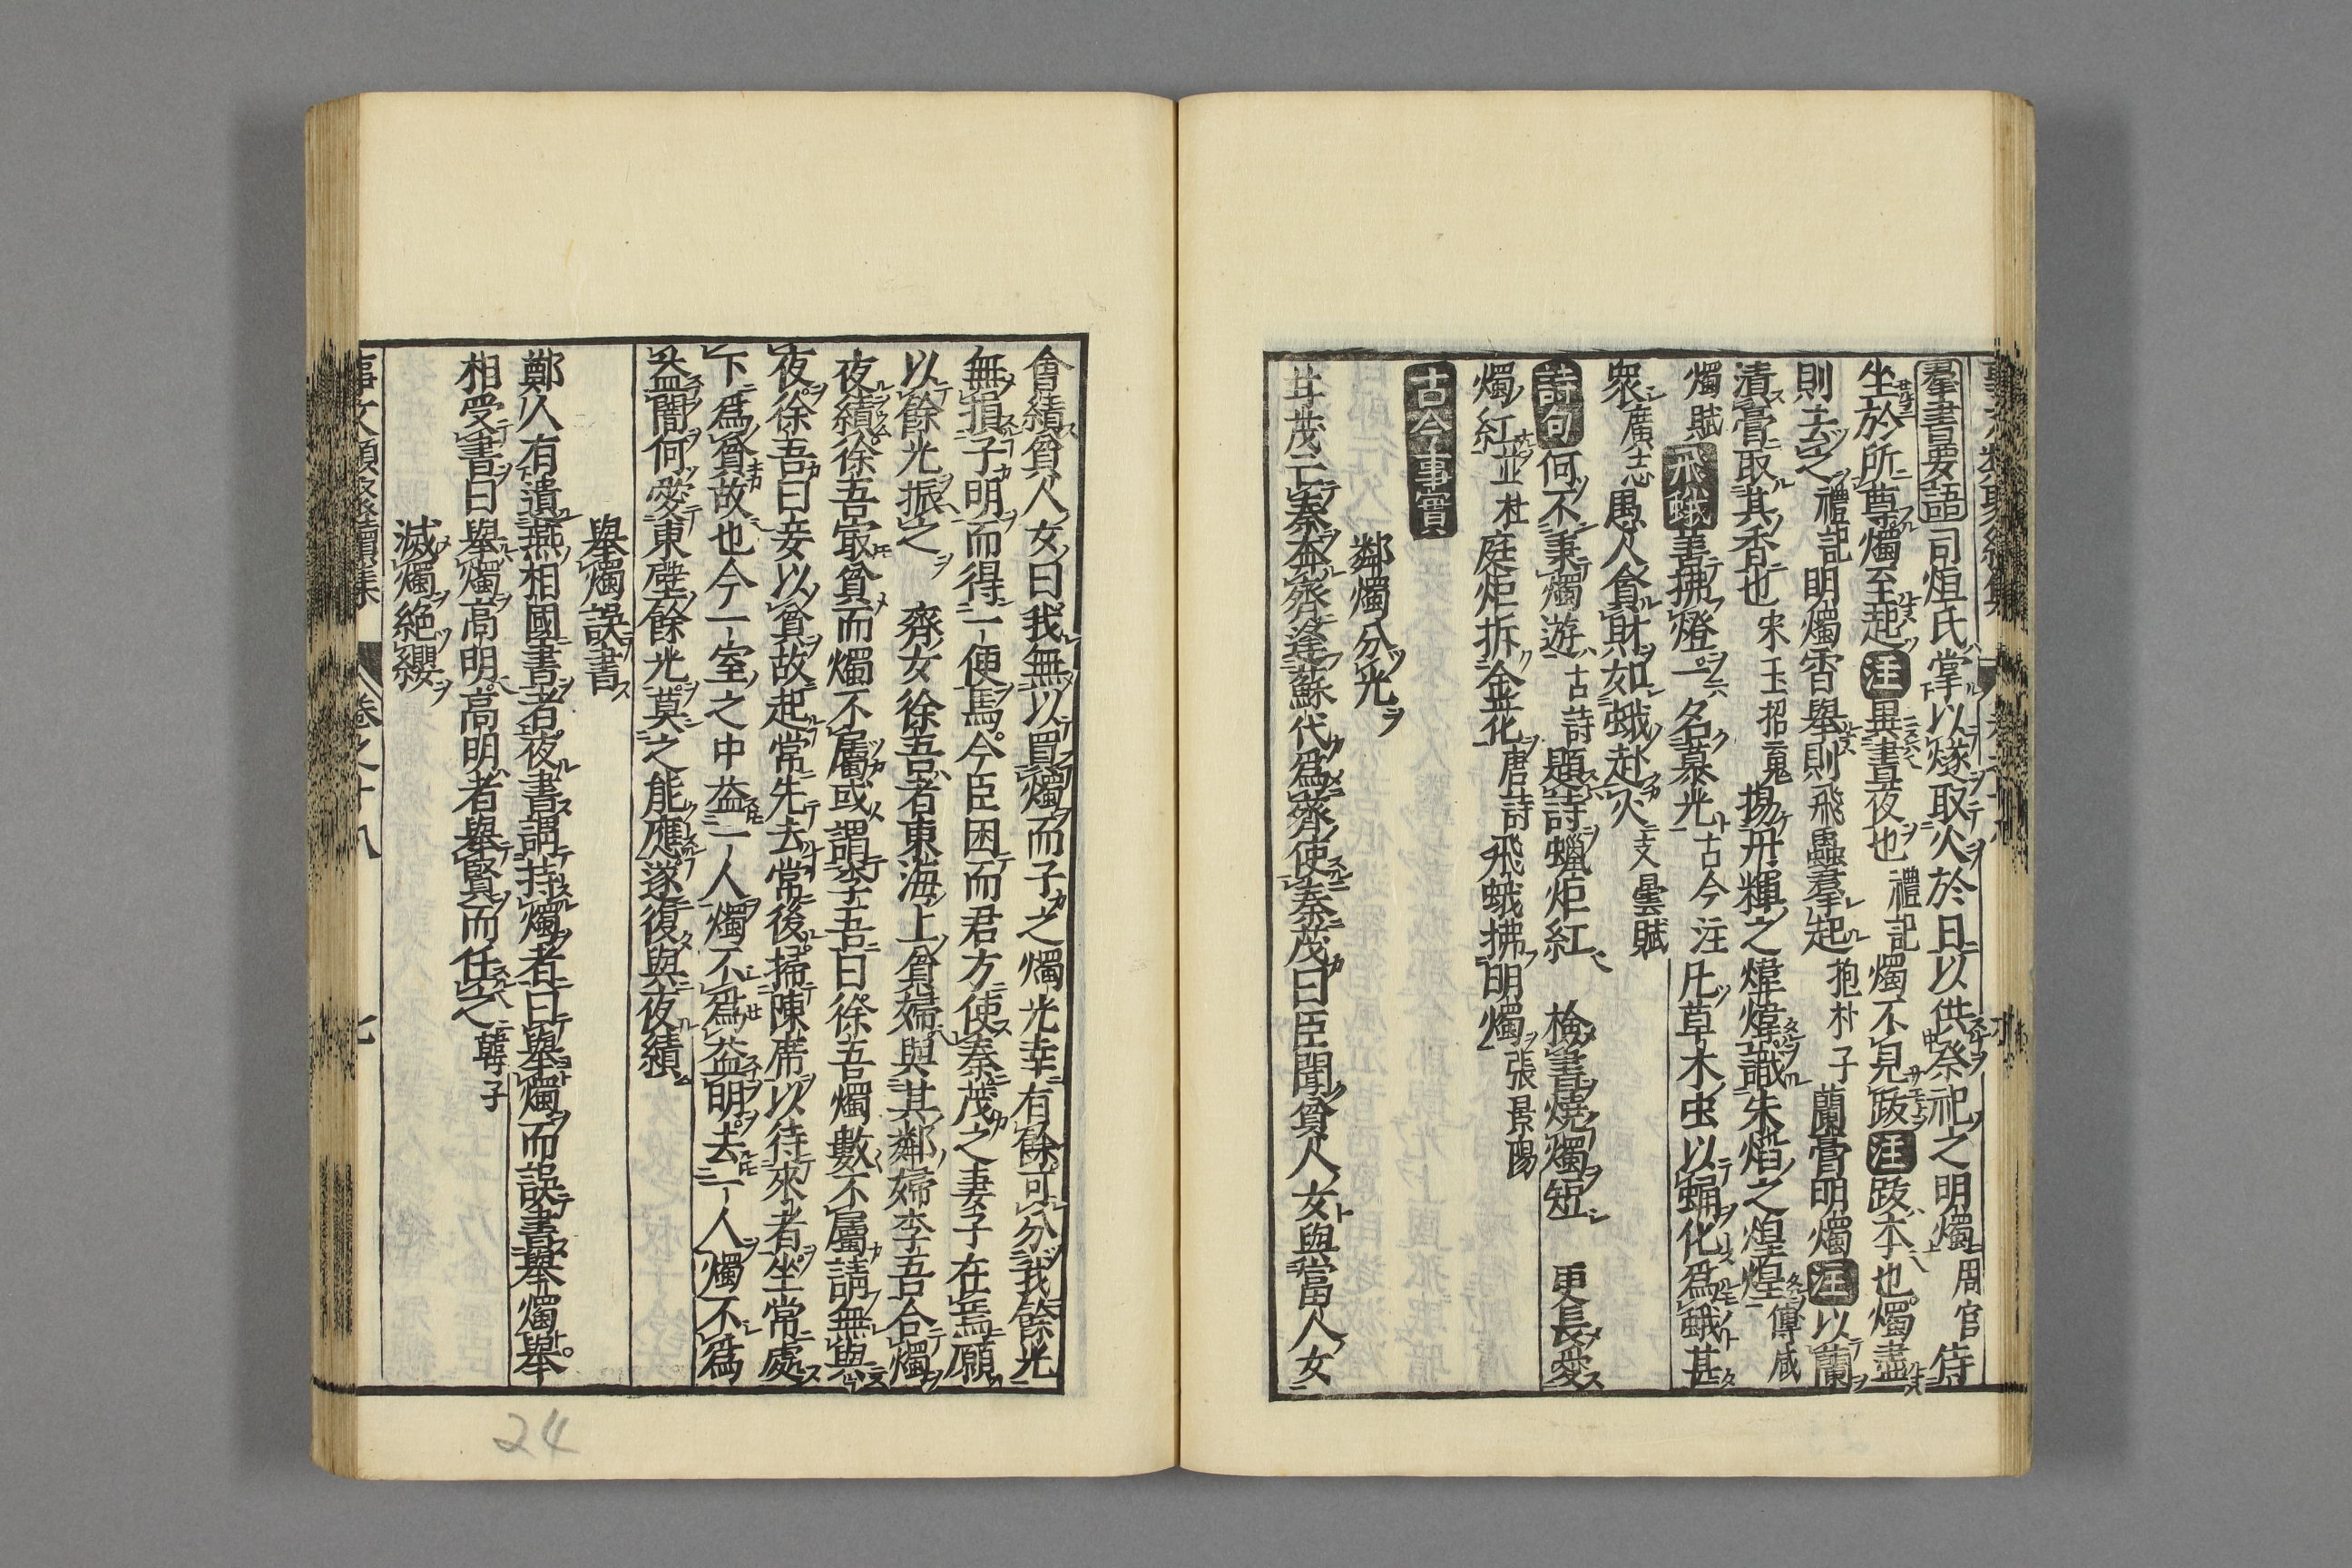 羣書要語司烜氏掌以燧取火於日以供祭祀之明燭周官 侍
坐於所尊燭至起注異晝夜也禮記燭不見跋注跋本也燭盡
則去之禮記明燭宵舉則飛蟲羣起抱朴子蘭膏明燭注以蘭
漬膏取其香也宋玉招䰟揚丹輝之煒煒識朱熖之煌煌傅咸
燭賦飛蛾善拂燈一名慕光古今注凡草木虫以蛹化爲蛾甚
衆廣志愚人貪財如蛾赴火支曇賦
詩句何不秉燭遊古詩題詩蠟炬紅 檢書燒燭短 更長愛
燭紅並杜庭炬拆金花唐詩飛蛾拂明燭張景陽
古今事實
鄰燭分光
甘茂亡秦奔齊逢蘇代爲齊使秦茂曰臣聞貧人女與富人女
會績貧人女曰我無以買燭而子之燭光幸有餘可分我餘光
無損子明而得一便焉今臣困而君方使秦茂之妻子在焉願
以餘光振之 齊女徐吾者東海上貧婦與其鄰婦李吾合燭
夜績徐吾㝡貧而燭不屬或謂李吾曰徐吾燭數不屬請無與
夜徐吾曰妾以貧故起常先去常後掃陳席以待來者坐常處
下爲貧故也今一室之中益一人燭不爲益明去一人燭不爲
益闇何愛東壁餘光莫之能應遂復與夜績
舉燭誤書
鄭人有遺燕相國書者夜書謂持燭者曰舉燭而誤書舉燭舉
相受書曰舉燭高明高明者舉賢而任之韓子
滅燭絶纓
事文類聚續集 卷之十八 七